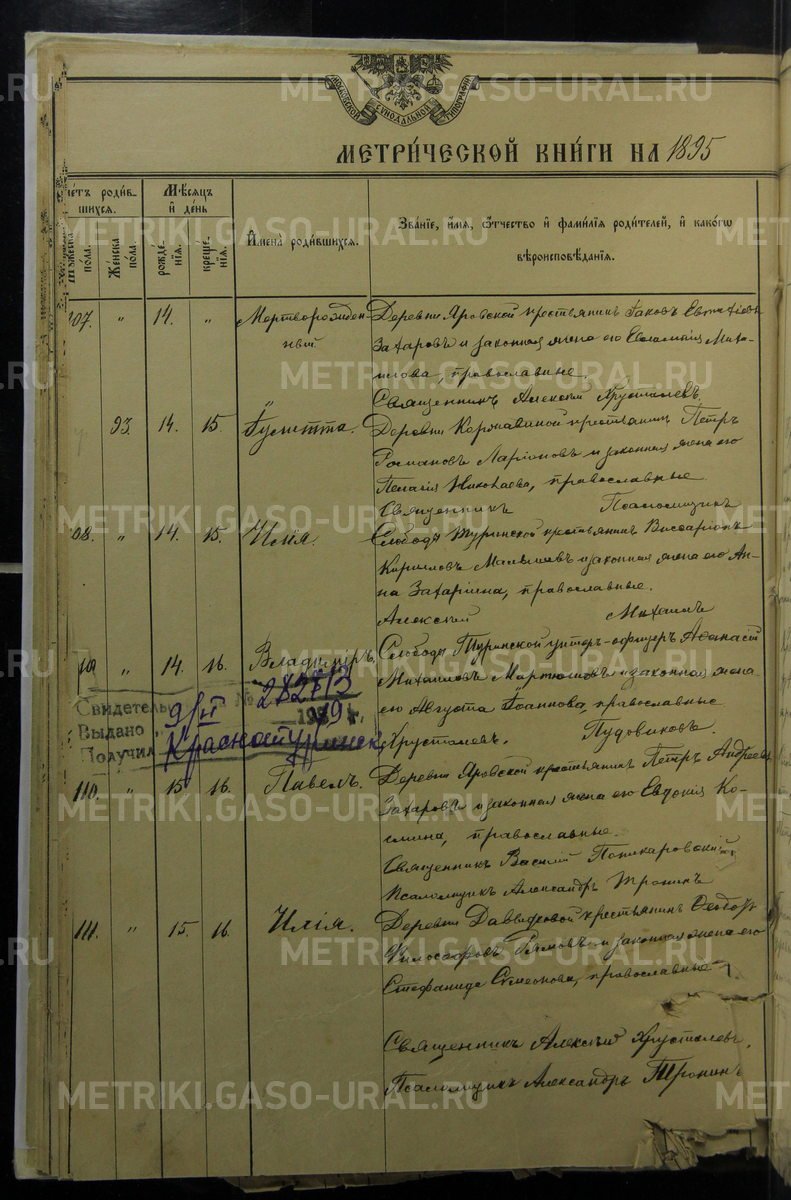 МОСКОВСКОЙ СѴНОДАЛЬНОЙ ТИПОГРАФІИ
МЕТРИЧЕСКОЙ КНИГИ НА 1895
Счетъ родившихся.
Мѣсяцъ и день
Имена родившихся.
Званіе, имя, отчество и фамилія родителей, и какого вѣроисповѣданія.
Мужеска пола.
Женска пола.
рожденія.
крещенія.
107. " 14. " Мертворожденный
Деревни Яровской крестьянинъ Іаковъ
Захаровъ и законная жена его Миха-
илова, православные.
Священникъ Алексій Хрусталевъ.
" 93. 14. 15. Іулитта.
Деревни крестьянинъ Петръ
Романовъ Ларіоновъ и законная жена его
Пелагія Николаева, православные
Священникъ Псаломщикъ
108. " 14. 15. Илія.
Слободы Туринской крестьянинъ Виссаріонъ
Кирилловъ и законная жена его Ан-
на Захаріина, православные.
Алексій Михаилъ
109 " 14. 16. Владиміръ.
Слободы Туринской унтеръ-офицеръ Аѳанасій
Михаиловъ и законная жена
его Августа Іоаннова, православные
Хрусталевъ. Пудовиковъ.
Свидетель № 282813
Выдано 9/VI 19 9 г.
Получил Краснотуринск
110. " 15 16. Павелъ.
Деревни Яровской крестьянинъ Петръ Андреевъ
Захаровъ и законная жена его Евдокія Ко-
смина, православные.
Священникъ Василій Поликаровскій
Псаломщикъ Александръ Тронинъ
111. " 15. 16 Илія.
Деревни Давыдковой крестьянинъ Ѳеодоръ
и законная жена его
Стефанида Симеонова, православные
Священникъ Алексій Хрусталевъ.
Псаломщикъ Александръ Тронинъ
METRIKI.GASO-URAL.RU